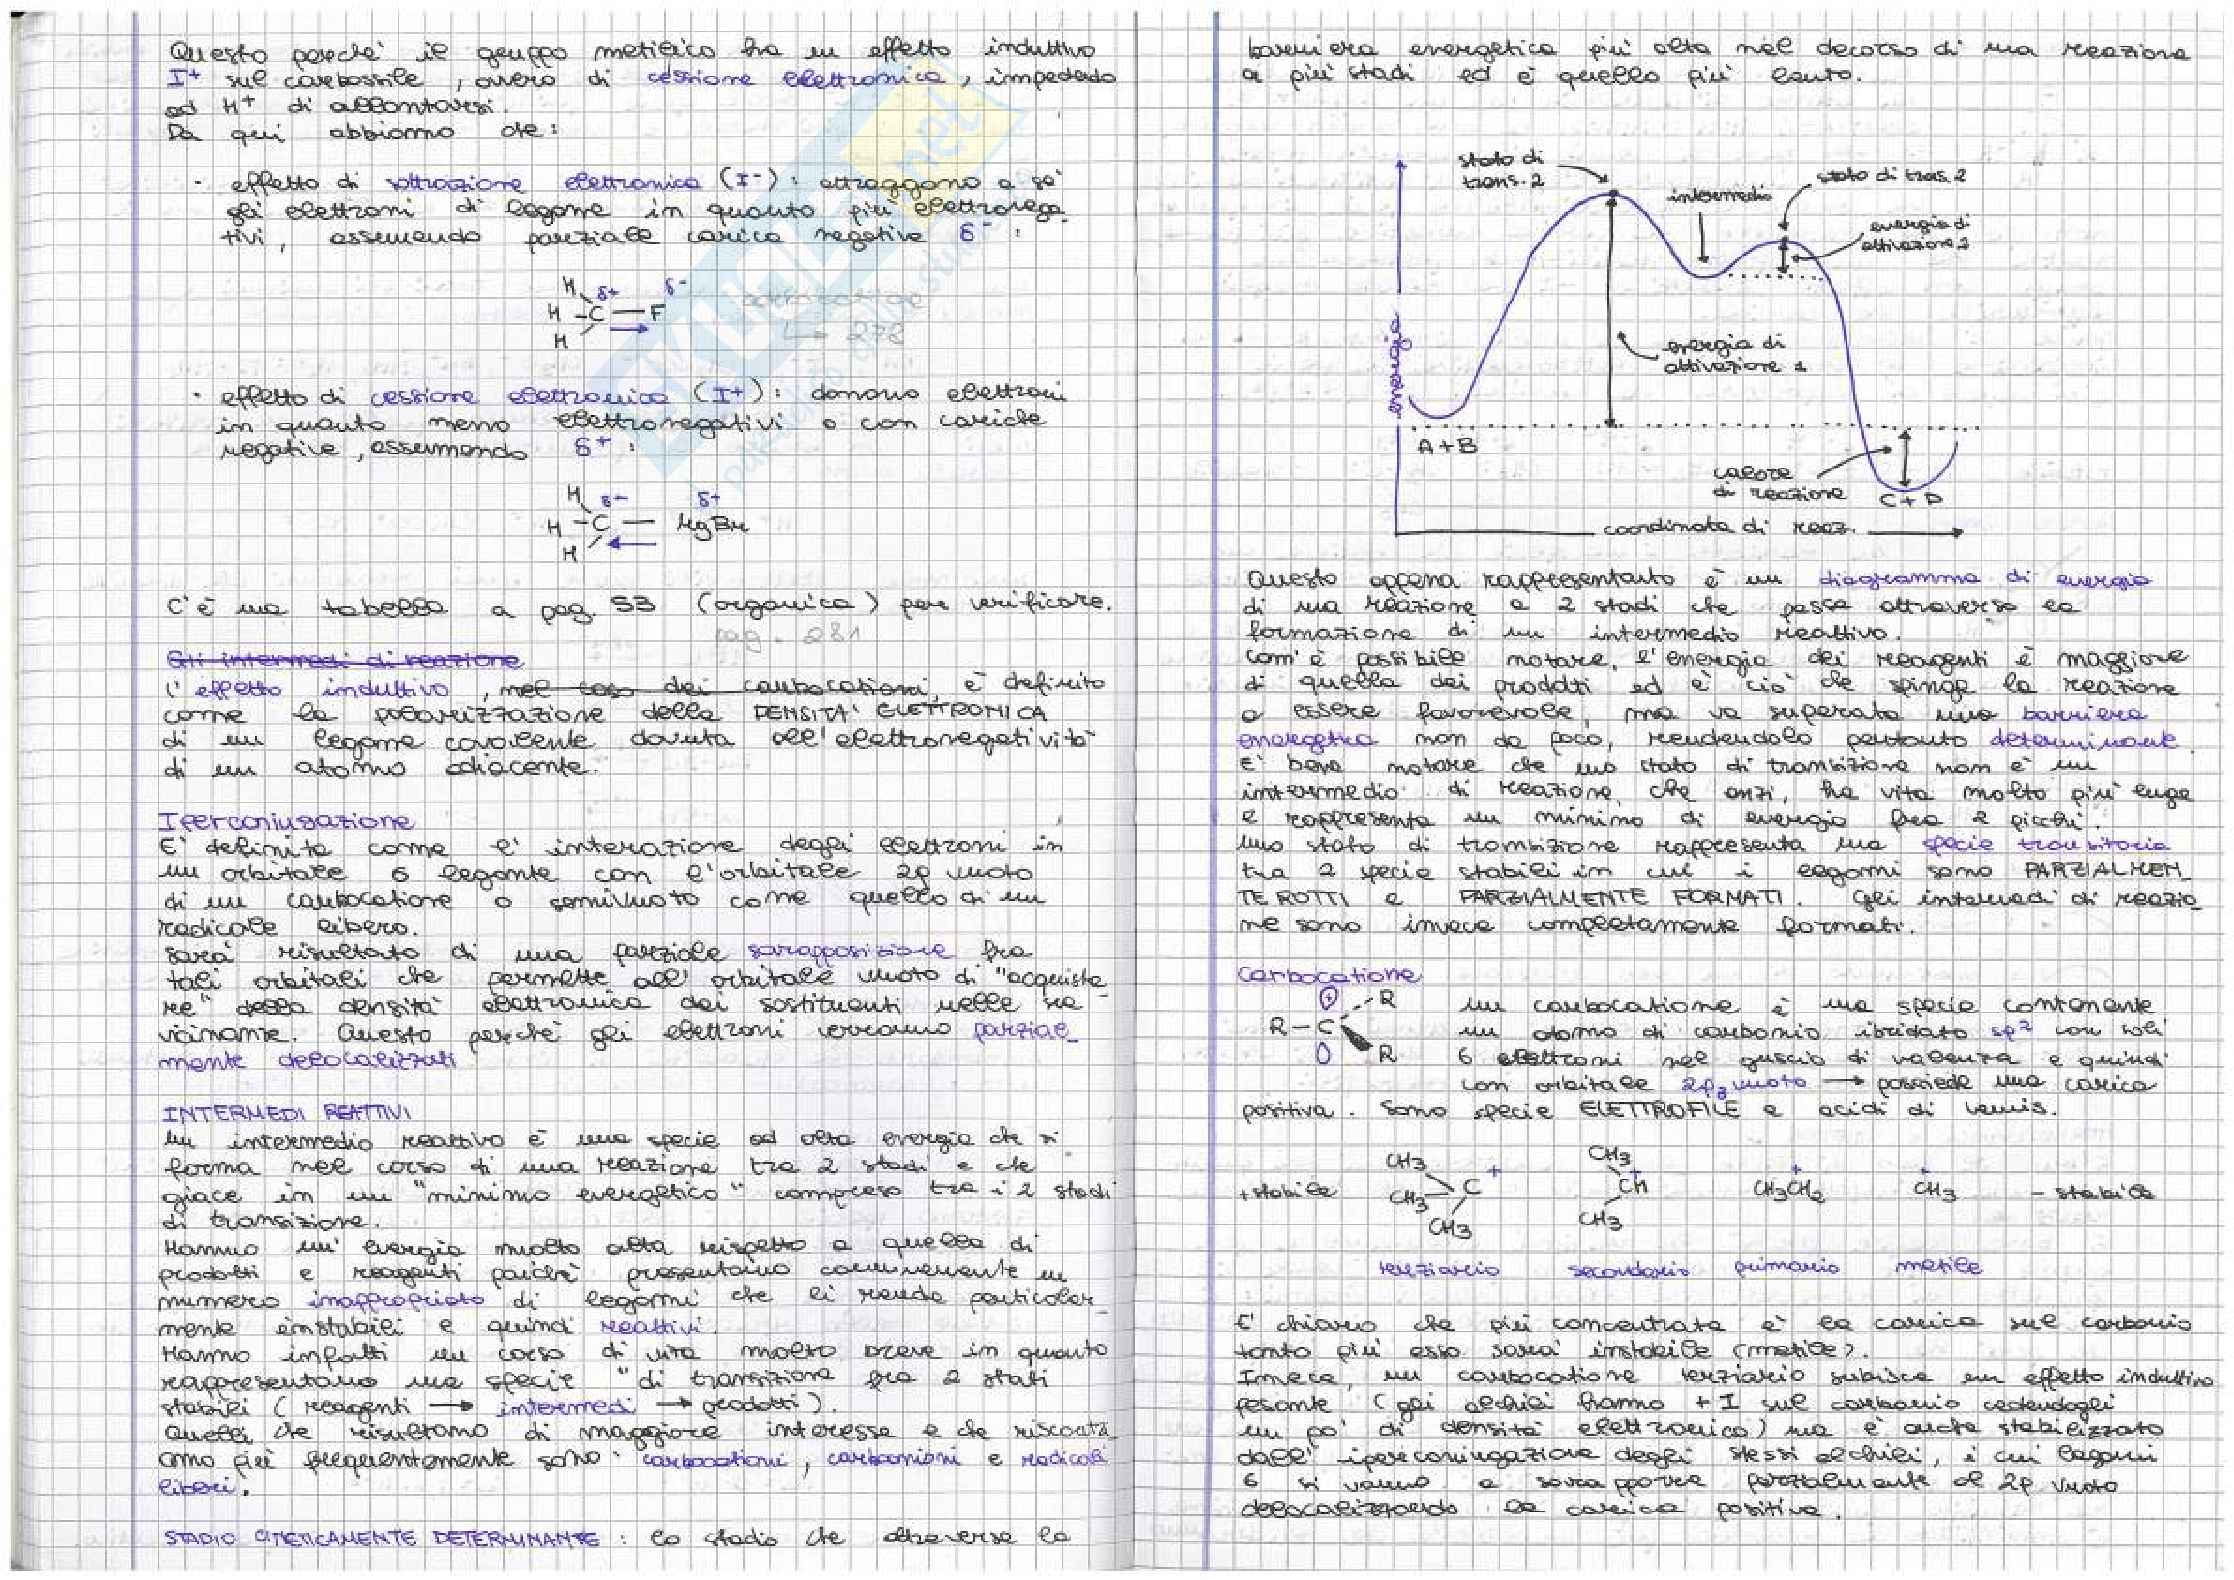 Questo perché il gruppo metilico ha un effetto induttivo
I+ sul carbossile, ovvero di cessione elettronica, impedendo
ad H+ di allontarsi.
Da qui abbiamo che:
- effetto di sottrazione elettronica (I-): attraggono a sé
gli elettroni di legame in quanto più elettronega_
tivi, assumendo parziale carica negativa δ- :
H δ+ δ-
H - C — F
H
→ 278
- effetto di cessione elettronica (I+): donano elettroni
in quanto meno elettronegativi o con cariche
negative, assumendo δ+ :
H δ- δ+
H - C — MgBr
H
C'è una tabella a pag. 53 (organica) per verificare.
pag. 281
Gli intermedi di reazione
L'effetto induttivo, nel caso dei carbocationi, è definito
come la polarizzazione della DENSITA' ELETTRONICA
di un legame covalente dovuta all'elettronegatività
di un atomo adiacente.
Iperconiugazione
E' definita come l'interazione degli elettroni in
un orbitale σ legante con l'orbitale 2p vuoto
di un carbocatione o semivuoto come quello di un
radicale libero.
Sarà risultato di una parziale sovrapposizione fra
tali orbitali che permette all'orbitale vuoto di "acquista
re" della densità elettronica dai sostituenti nelle sue
vicinanze. Questo perché gli elettroni verranno parzial_
mente delocalizzati
INTERMEDI REATTIVI
Un intermedio reattivo è una specie ad alta energia che si
forma nel corso di una reazione tra 2 stadi e che
giace in un "minimo energetico" compreso tra i 2 stadi
di transizione.
Hanno un'energia molto alta rispetto a quella di
prodotti e reagenti poiché presentano comunemente un
numero inappropriato di legami che li rende particolar_
mente instabili e quindi reattivi.
Hanno infatti un corso di vita molto breve in quanto
rappresentano una specie "di transizione fra 2 stati
stabili (reagenti → intermedi → prodotti).
Quelli che risultano di maggiore interesse e che riscontri
amo più frequentemente sono: carbocationi, carbanioni e radicali
liberi.
STADIO CINETICAMENTE DETERMINANTE : lo stadio che attraversa la
barriera energetica più alta nel decorso di una reazione
a più stadi ed è quello più lento.
stato di
trans. 2
intermedio
stato di tras. 2
energia di
attivazione 2
energia
energia di
attivazione 1
A + B
calore
di reazione
C + D
coordinata di reaz.
Questo appena rappresentanto è un diagramma di energia
di una reazione a 2 stadi che passa attraverso la
formazione di un intermedio reattivo.
Com'è possibile notare, l'energia dei reagenti è maggiore
di quella dei prodotti ed è ciò che spinge la reazione
a essere favorevole, ma va superata una barriera
energetica non da poco, rendendolo pertanto determinante.
E' bene notare che uno stato di transizione non è un
intermedio di reazione, che anzi, ha vita molto più lunga
e rappresenta un minimo di energia fra 2 picchi.
Uno stato di transizione rappresenta una specie transitoria
tra 2 specie stabili in cui i legami sono PARZIALMEN_
TE ROTTI e PARZIALMENTE FORMATI. Gli intermedi di reazio_
ne sono invece completamente formati.
Carbocatione
R - C R R +
un carbocatione è una specie contenente
un atomo di carbonio ibridato sp2 con soli
6 elettroni nel guscio di valenza e quindi
con orbitale 2pz vuoto → possiede una carica
positiva. Sono specie ELETTROFILE e acidi di Lewis.
CH3 CH3
+ stabile CH3 C + CH+ CH3CH2+ CH3+ - stabile
CH3 CH3
terziario secondario primario metile
E' chiaro che più concentrata è la carica sul carbonio
tanto più esso sarà instabile (metile).
Invece, un carbocatione terziario subisce un effetto induttivo
pesante (gli alchili hanno +I sul carbonio cedendogli
un po' di densità elettronica) ma è anche stabilizzato
dall'iperconiugazione degli stessi alchili, i cui legami
σ si vanno a sovrapporre parzialmente al 2p vuoto
delocalizzando la carica positiva.